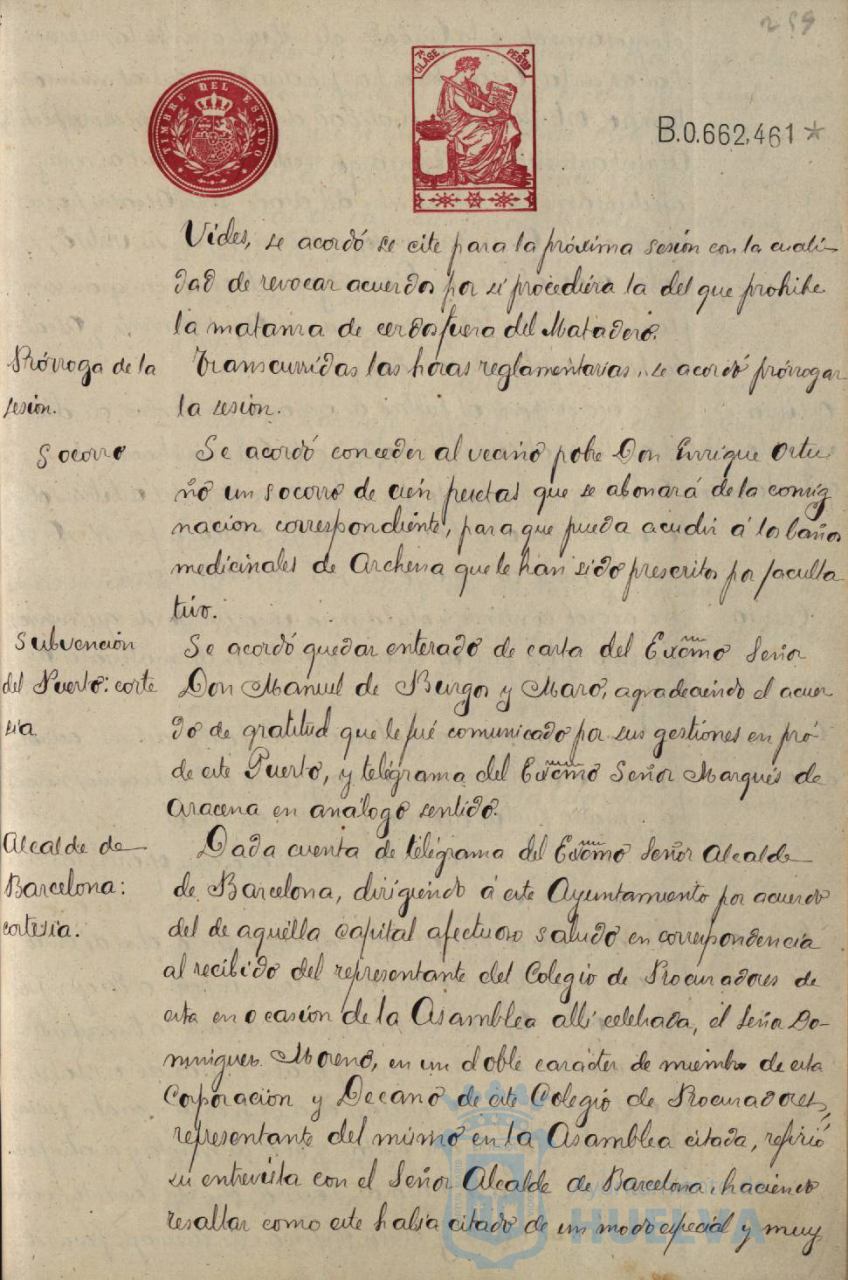 259
TIMBRE DEL ESTADO
7ª CLASE 2 PESETAS
B.0.662,461 *
Vides, se acordó se cite para la próxima sesión con la cuali-
dad de revocar acuerdos por si procediera la del que prohibe
la matanza de cerdos fuera del Matadero.
Prórroga de la
sesion.
Transcurridas las horas reglamentarias, se acordó prórrogar
la sesion.
Socorro
Se acordó conceder al vecino pobre Don Enrique Ortu-
ño un socorro de cien pesetas que se abonará de la consig
nacion correspondiente, para que pueda acudir á los baños
medicinales de Archena que le han sido prescritos por faculta
tivo.
Subvención
del Puerto: corte
sia
Se acordó quedar enterado de carta del Excmo Señor
Don Manuel de Burgos y Mazo, agradeciendo el acuer
do de gratitud que le fué comunicado por sus gestiones en pró
de este Puerto, y telégrama del Excmo Señor Marqués de
Aracena en análogo sentido.
Alcalde de
Barcelona:
cortesia.
Dada cuenta de telégrama del Excmo Señor Alcalde
de Barcelona, dirigiendo á este Ayuntamiento por acuerdo
del de aquélla Capital afectuoso saludo en correspondencia
al recibido del representante del Colegio de Procuradores de
esta en ocasión de la Asamblea alli celebrada, el Señor Do-
minguez Moreno, en un doble carácter de miembro de esta
Corporacion y Decano de este Colegio de Procuradores,
representante del mismo en la Asamblea citada, refirió
su entrevista con el Señor Alcalde de Barcelona, haciendo
resaltar como este habia citado de un modo especial y muy
HUELVA